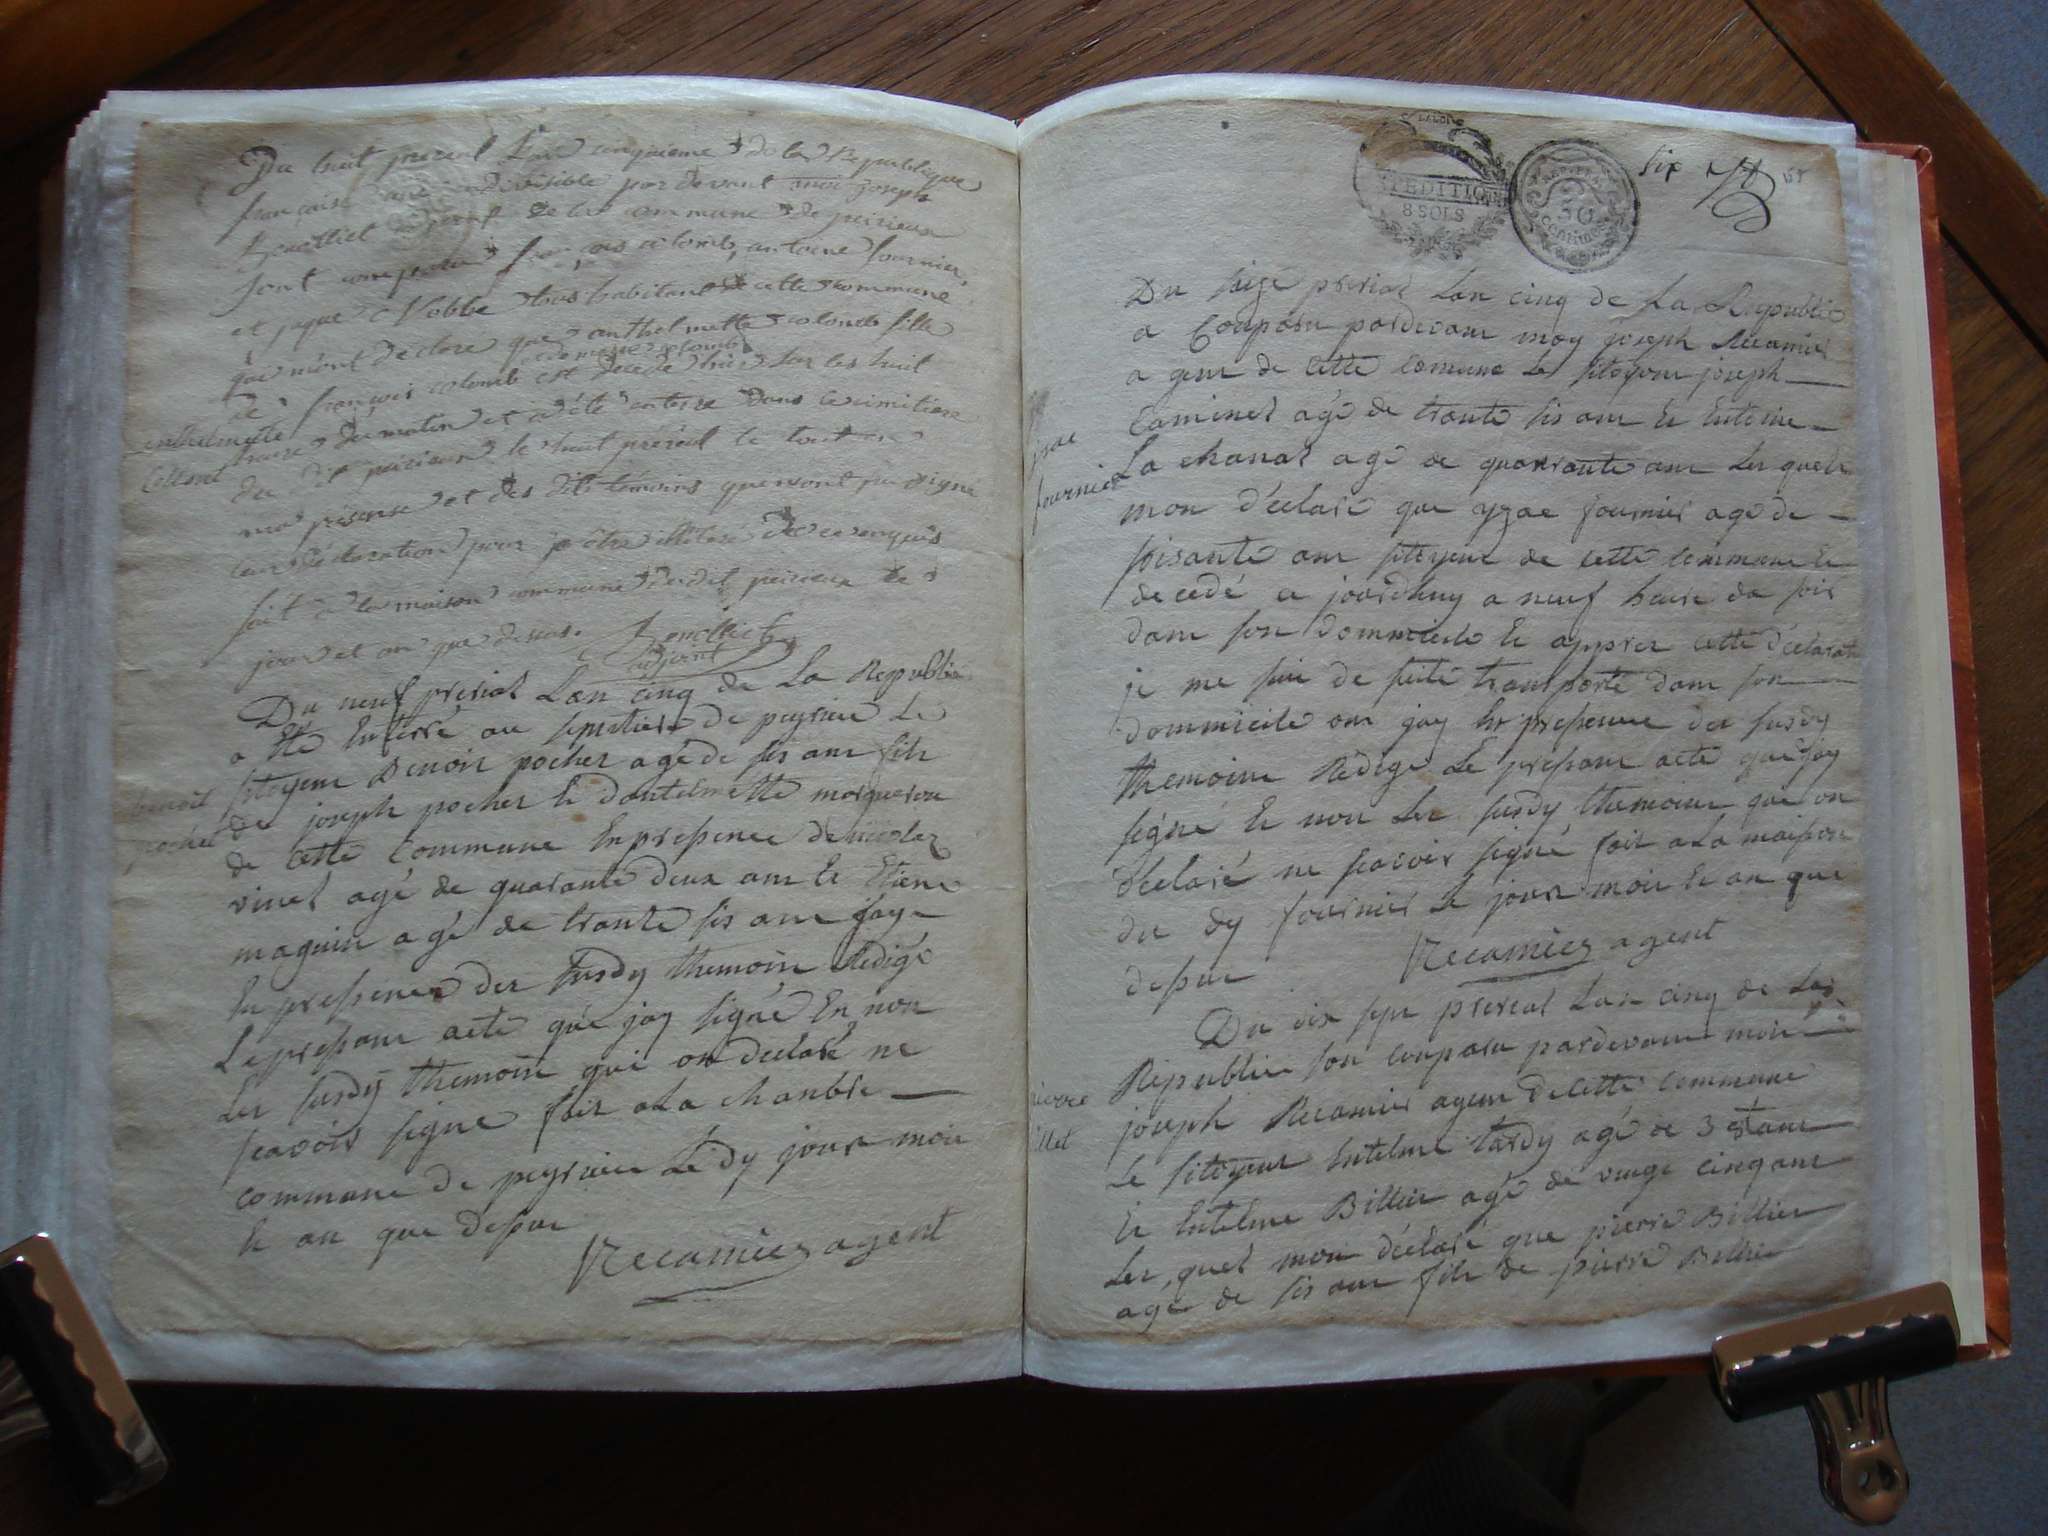 Du huit prerial L'an cinquieme de la Republique
francaise une indivisible par devant moi joseph
adjoint de la commune de peirieux
sont comparus francois colomb, antoine fournier,
et jaque tous habitant de cette commune
qui m'ont declare que anthelmette colomb fille
de francois colomb est decede hier sur les huit
anthelmette
collont
heures du matin et a été enterre dans le cimitiere
du dit peirieux le huit prérial le tout en
ma présense et des dits témoins qui n'ont pu signé
leur déclaration pour
fait a la maison commune du dit peirieux le
jour et an que dessus.
adjoint
Du neuf prerial Lan cinq de La Republic
a été Enterré au de peyrieu Le
benoit
pochet
sitoyen Benoit pochet agé de sis ans fils
de joseph pochet Et dantelmette
de cette Commune En pressence de nicolaz
vinet agé de quarante deux ans Et Etiene
maguin agé de trante sis ans jay
En pressence des susdy themoin Redigé
Le pressant acte que jay signé En non
Les susdy themoin qui on declaré ne
scavoir signe fait a La chanbre
commune de peyrieu Le dy jour mois
Et an que dessus
Recamier agent
EXPEDITION
8 SOLS
50
Centimes
six
Du saize prerial Lan cinq de La Republic
a Conparu pardevant moy joseph Récamier
agent de cette comune Le sitoyen joseph
Caminet agé de trante sis ans Et Entoine
ysae
fournier
La chanal agé de quarrante ans Les quels
mon déclaré que yzae fournier agé de
soisante ans sitoyens de cette commune Et
decedé ce jourdhuy a neuf heure du soir
dans son dommicile Et appres cette déclarat
je me suis de suite transporté dans son
dommicile ou jay En pressence des susdy
themoins Redigé Le pressant acte que jay
signé Et non Les susdy themoins qui on
déclaré ne scavoir signé fait a La maison
du dy fournier Le jour mois Et an que
dessus
Recamier agent
Du dix sept prerial Lan cinq de La
Republic son conparu pardevant moi
pierre
illet
joseph Recamier agent de cette commune
Le sitoyen Entelme tardy agé de 3 ans
Et Entelme Billiet agé de vingt cinq ans
Les quel mon déclaré que pierre Billiet
agé de sis ans fils de pierre Billiet